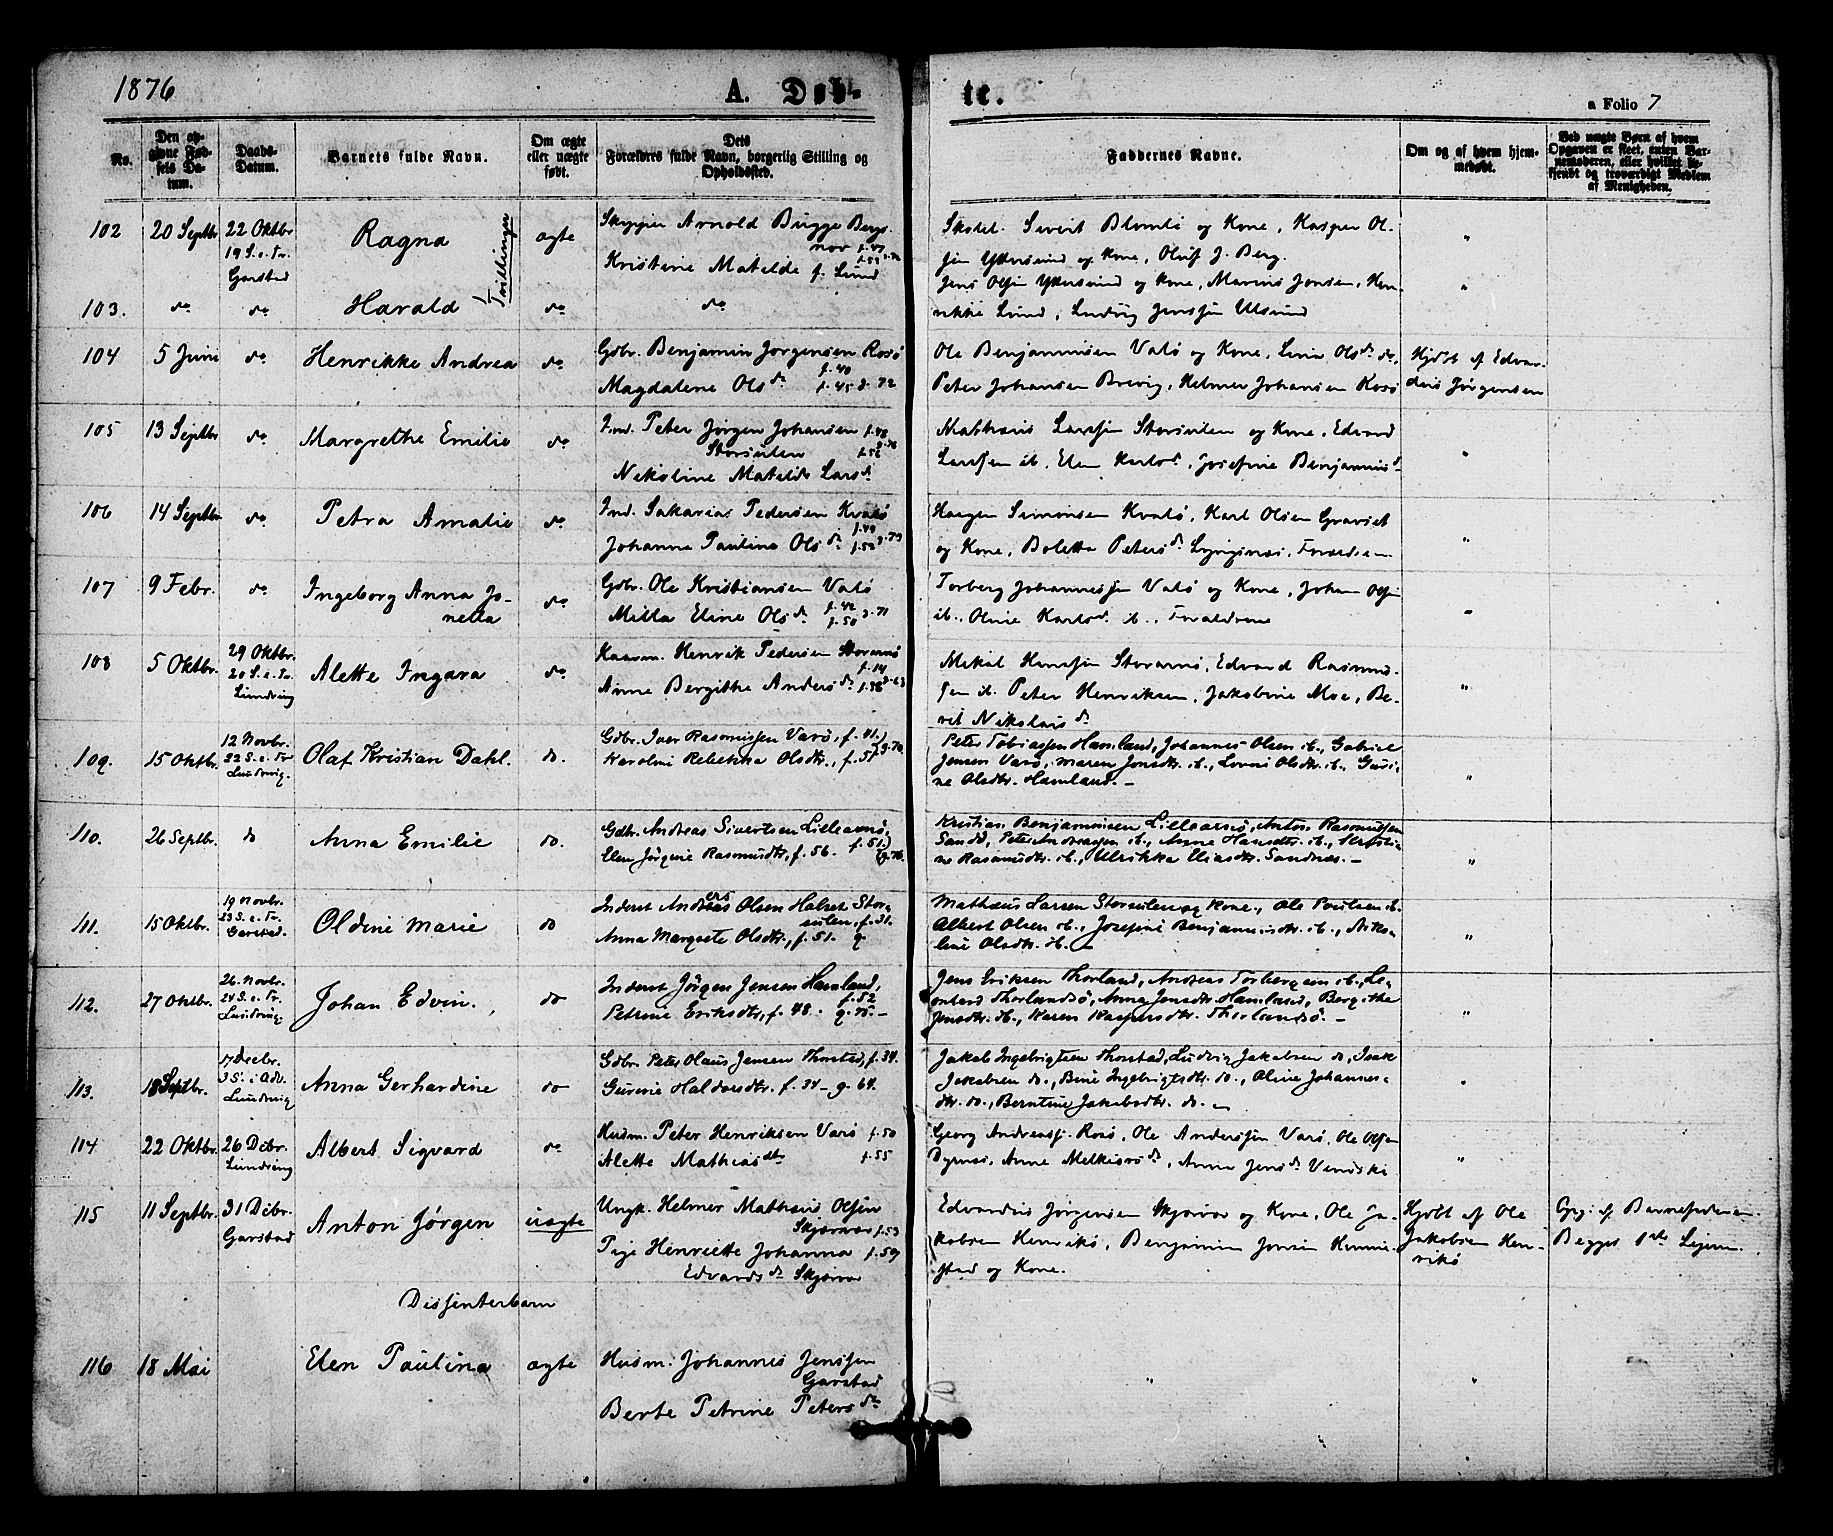 1876
A. Døb-
te.
a Folio 7
No.
Den opgivne Fødsels Datum.
Daabs-Datum.
Barnets fulde Navn.
Om ægte eller uægte født.
Dets Forældres fulde Navn, borgerlig Stilling og Opholdssted.
Faddernes Navne.
Om og af hvem hjemmedøbt.
Ved uægte Børn af hvem Opgaven er skeet, enten Barnemoderen, eller hvilket bekjendt og troværdigt Medlem af Menigheden.
102 20 Septbr 22 Oktbr 19 S. e. Tr. Garstad
Ragna
Tvillinger
ægte
Arnold Bugge Bergsnov f. 47
Kristine Matilde f. Lund f. 53
Sivert Blomlø og Kone, Kasper Ol-
og Kone, Oluf J. Berg.
"
103. do do Harald do do
og Kone, Marius Jonsen, Hen-
rikke Lund, Ludvig Jenssen Ulsund
"
104 5 Juni do Henrikke Andrea do
Gdbr. Benjamin Jørgensen Rosø f. 40
Magdalene Olsdr f. 45 g. 72
Ole Benjaminsen Valø og Kone, Olsdr do,
Peter Johansen Brevig, Helmer Johansen Rosø
Hjdbt af Edvar-
dus Jørgensen
105 13 Septbr do Margrethe Emilie do
Ind. Peter Jørgen Johansen f. 48
Storsulen g. 76
Nikoline Matilde Larsdr
Matthæus Larssen Storsulen og Kone, Edvard
Larssen ib. Elen Karlsdr, Josefine Benjaminsdr
"
106 14 Septbr do Petra Amalie do
Ind. Sakarias Pedersen Kvalø f. 49
Johanna Paulina Olsdr f. 52 g. 73
Simonsen Kvalø, Karl Olsen
og Kone, Boletta Petersdr
"
107 9 Febr. do Ingeborg Anna Jo-
nella do
Gdbr. Ole Kristiansen Valø f. 42
Milla Eline Olsdr f. 50 g. 71
Torberg Johannessen Valø og Kone, Johan Olsen
ib., Oline Karlsdr ib., Forældrene
"
108 5 Oktbr. 29 Oktbr. 20 S. e. Tr. Lundring
Alette Ingara do
Henrik Pedersen f. 14
Anne Bergithe Andersdr f. 38 g. 63
Mikal Hanssen Storarnø, Edvard Rasmus-
sen ib. Peter Henriksen, Jakobine Moe, Be-
rit Nikolaisdr
"
109. 15 Oktbr. 12 Novbr. 22 S. e. Tr Lundring.
Olaf Kristian Dahl. do.
Gdbr. Iver Rasmussen Varø, f. 41.
Karoline Rebekka Olsdtr., f. 51 g. 70.
Peter Tobiassen Hamland, Johannes Olsen ib., Gabriel
Jensen Varø, Maren Jonsdtr. ib., Lovise Olsdtr. ib., Guri-
ne Olsdtr. Hamland. -
"
110. 26 Septbr. do Anna Emilie do.
Gdbr. Andreas Sivertsen Lillearnø, f. 51.
Elen Jørgine Rasmusdtr., f. 56. g. 76.
Kristian Benjaminsen Lillearnø, Anton Rasmussen
Sandø, Peter Andreassen ib., Anne Hansdtr. ib., Kristi-
ne Rasmusdtr. ib., Ulrikka Eliasdtr. Sandnæs. -
"
111. 15 Oktbr. 19 Novbr. 23 S. e. Tr. Garstad.
Oldine Marie do
Inderst Anders Olsen Halset Stor-
sulen, f. 31.
Anna Margrete Olsdtr., f. 51. g.
Mathæus Larsen Storsulen og Kone, Ole Poulsen ib.
Albert Olsen ib., Josefine Benjaminsdtr. ib., Niko-
line Olsdtr. ib. -
"
112. 27 Oktbr. 26 Novbr. 24 S. e. Tr. Lundring.
Johan Edvin. do
Inderst Jørgen Jensen Hamland, f. 52
Petrine Eriksdtr., f. 48. g. 75. -
Jens Eriksen Thorland, Andreas Torbergsen ib., Le-
onhard Thorlandsø, Anna Jensdtr. Hamland, Bergithe
Jensdtr. ib., Karen Kaspersdtr. Thorlandsø. -
"
113. 18 Septbr. 17 Decbr. 3 S. i Adv. Lundring
Anna Gerhardine do
Gdbr. Peter Olaus Jensen Thorstad, f. 34.
Gurine Haldorsdtr. f. 34 - g. 64.
Jakob Ingebrigtsen Thorstad, Ludvig Jakobsen do, Isak
Jakobsen do., Bine Ingebrigtsdtr. do., Oline Johannes-
dtr. do., Berntine Jakobsdtr. do. -
"
104 22 Oktbr. 26 Dcbr. Lundring
Albert Sigvard do
Husm. Peter Henriksen Varø f. 50
Alette Mathiasdtr f. 55
Georg Andreass. Rosø, Ole Anderssen Varø, Ole Olsen
Dyrnæs, Anne Melkiorsdr, Anna Jensdr
"
115 11 Septbr. 31 Dcbr. Garstad
Anton Jørgen uægte
Ungk. Helmer Mathæus Olsen
Skjærvær f. 53
Pige Henriette Johanna f. 59
Edvardsdr Skjærvær
Edvardus Jørgensen Skjærvær og Kone, Ole Ja-
kobsen Henrikø, Benjamin Jonsen
og Kone.
Hjdbt af Ole
Jakobsen Hen-
rikø
Opg. af Barnefaderen.
Begges 1ste Leierm.
Dissenterbarn
116 18 Mai Elen Paulina ægte
Husm. Johannes Jenssen
Garstad
Berte Petrine Petersdr
" "